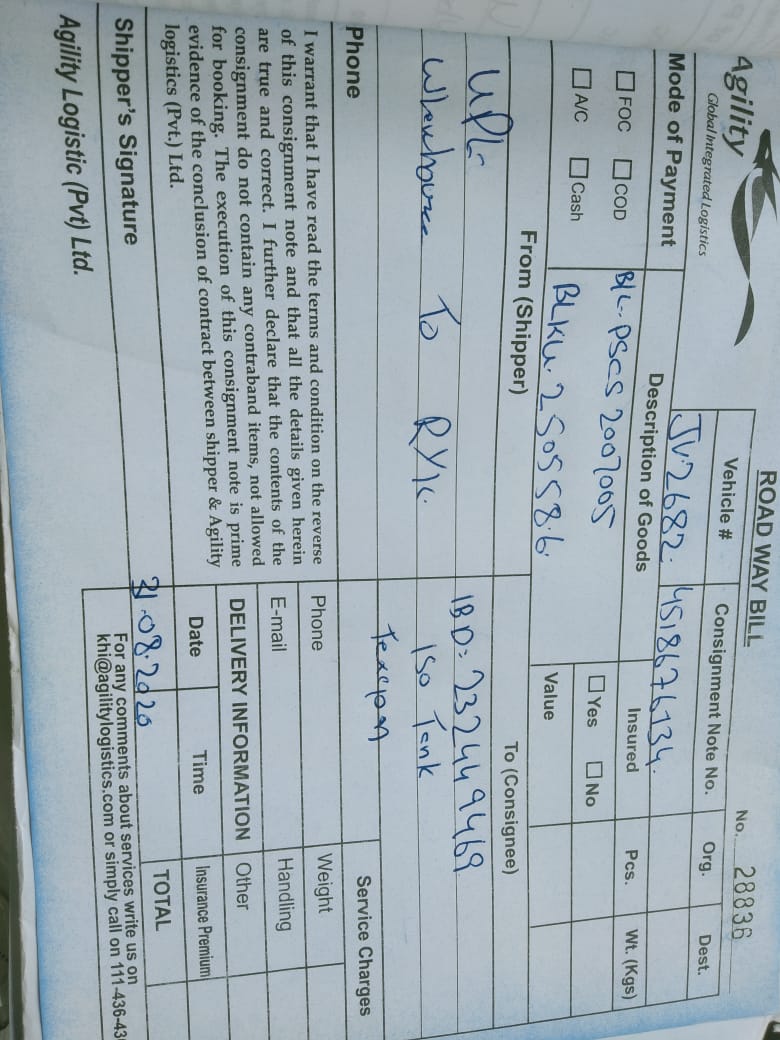 Agility
Global Integrated Logistics
ROAD WAY BILL
No. 28836
Vehicle #
Consignment Note No.
Org.
Dest.
JV.2682.
4518676134.
Mode of Payment
FOC
COD
A/C
Cash
Description of Goods
B/L. PSCS 2007005
BLKU. 250558.6.
Insured
Pcs.
Wt. (Kgs)
Yes
No
Value
From (Shipper)
UPL
To RYK.
To (Consignee)
IBD: 232449469
ISO Tank
Phone
I warrant that I have read the terms and condition on the reverse
of this consignment note and that all the details given herein
are true and correct. I further declare that the contents of the
consignment do not contain any contraband items, not allowed
for booking. The execution of this consignment note is prime
evidence of the conclusion of contract between shipper & Agility
logistics (Pvt.) Ltd.
Shipper's Signature
Agility Logistic (Pvt) Ltd.
Phone
E-mail
DELIVERY INFORMATION
Date
Time
31.08.2020
Service Charges
Weight
Handling
Other
Insurance Premium
TOTAL
For any comments about services write us on
khi@agilitylogistics.com or simply call on 111-436-43